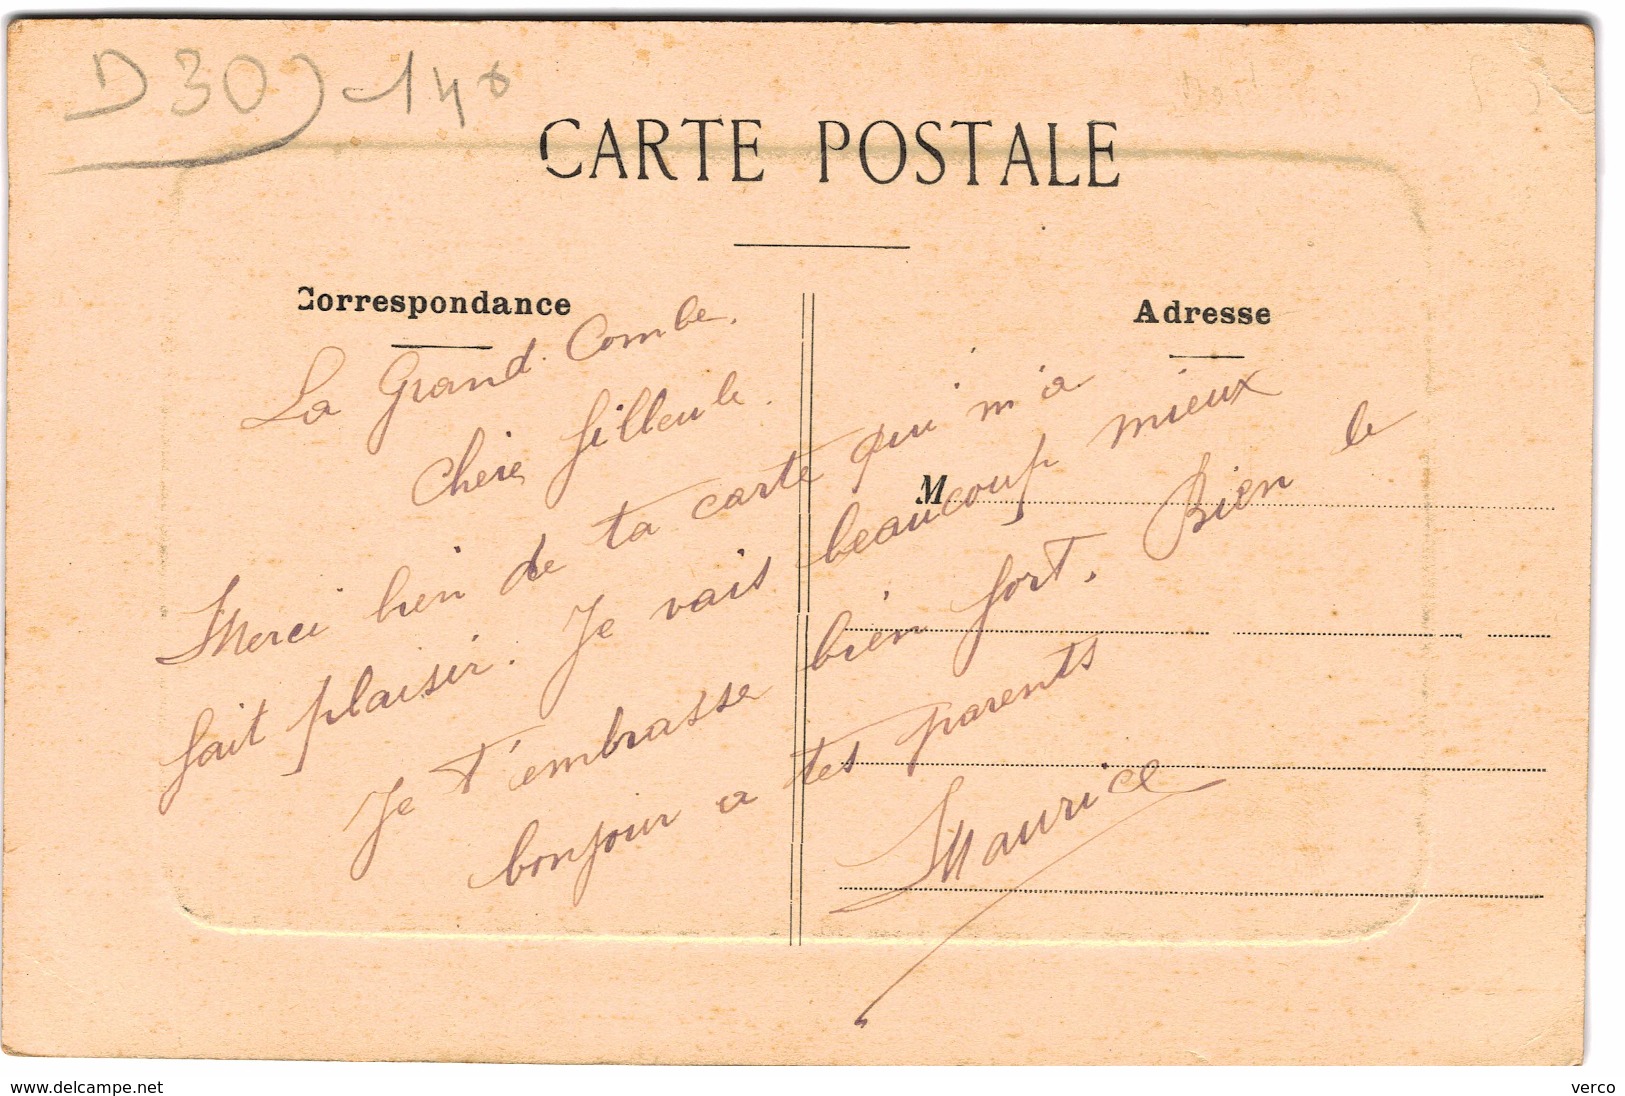 D30) - 148
CARTE POSTALE
Correspondance
Adresse
La Grand Combe.
Chère filleule.
Merci bien de ta carte qui m'a
fait plaisir. Je vais beaucoup mieux
Je t'embrasse bien fort. Bien le
bonjour a tes parents
Maurice
M
www.delcampe.net
verco